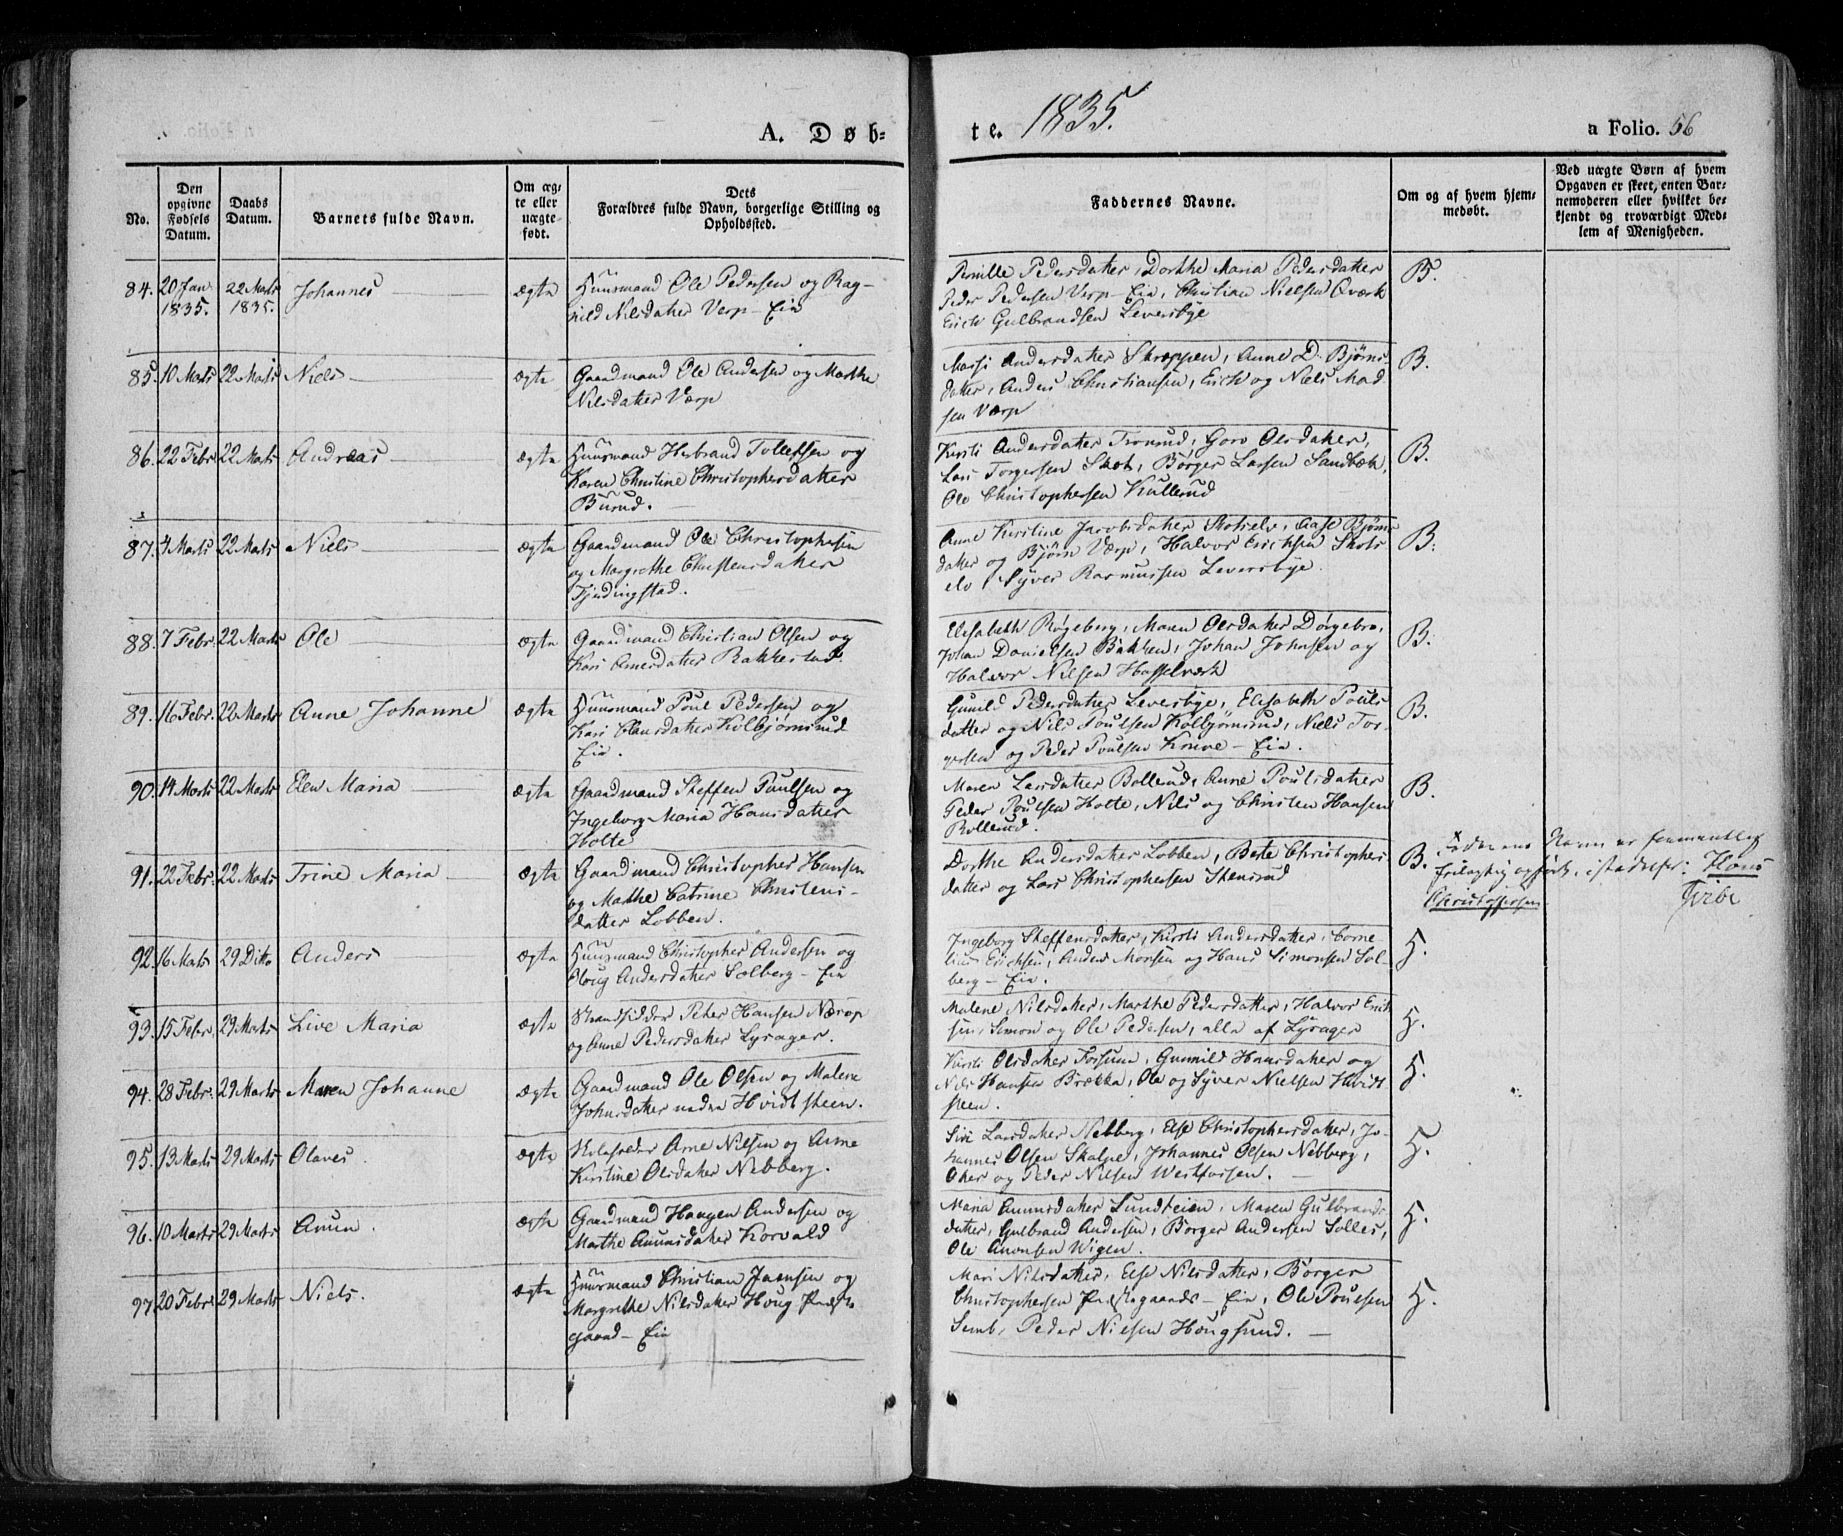 A. Døb=
te. 1835.
a Folio. 56
No.
Den opgivne Fødsels Datum.
Daabs Datum.
Barnets fulde Navn.
Om æg=
te eller
uægte
født.
Dets
Forældres fulde Navn, borgerlige Stilling og
Opholdssted.
Faddernes Navne.
Om og af hvem hjem=
medøbt.
Ved uægte Børn af hvem
Opgaven er skeet, enten Bar=
nemoderen eller hvilket be=
kjendt og troværdigt Med=
lem af Menigheden.
84. 20 Jan 1835. 22 Marts 1835. Johannes ægte
Huusmand Ole Pedersen og Rag-
nild Nilsdatter Verp - Eie
Pernille Pedersdatter, Dorthe Maria Pedersdatter
Peder Pedersen Verp - Eie, Christian Nielsen Qværk
Erich Gulbrandsen Leversbye
B.
85. 10 Marts 22 Marts Niels ægte
Gaardmand Ole Andersen og Marthe
Nilsdatter Værp
Andersdatter Skroppen, Anne D. Bjørns
datter, Anders Christiansen, Erich og Niels Mad
sen Værp
B.
86. 22 Febr 22 Marts Andreas ægte
Huusmand Herbrand Tollefsen og
Karen Christine Christophersdatter
Burud.
Kirsti Andersdatter Tronrud, Goro Olsdatter,
Lars Torgersen Skot, Børger Larsen Sandbæk,
Ole Christophersen Kullerud
B.
87. 4 Marts 22 Marts Niels ægte
Gaardmand Ole Christophersen
og Margrethe Christensdatter
Fjerdingstad.
Anne Kirstine Jacobsdatter Skotselv, Aase Bjørns
datter og Bjørn Værp, Halvor Erichsen Skots
elv, Syver Rasmussen Leversbye.
B.
88. 7 Febr. 22 Marts Ole ægte
Gaardmand Christian Olsen og
Kari Arnesdatter Rakkestad
Elisabeth Røgeberg, Maren Olsdatter Dørgebro,
Johan Danielsen Bakken, Johan Johnsen og
Halvor Nilsen Hasselværk
B.
89. 16 Febr. 22 Marts Anne Johanne ægte
Huusmand Poul Pedersen og
Kari Clausdatter Kolbjørnsrud
Eie.
Gunild Pedersdatter Leversbye, Elisabeth Pouls
datter og Nils Poulsen Kolbjørnsrud, Niels Tor
gersen og Peder Poulsen Knive - Eie.
B.
90. 14 Marts 22 Marts Elen Maria ægte
Gaardmand Steffen Paulsen og
Ingeborg Maria Hansdatter
Holte
Maren Larsdatter Bollerud, Anne Poulsdatter
Peder Poulsen Holte, Nils og Christen Hansen
Bollerud.
B.
91. 22 Febr. 22 Marts Trine Maria ægte
Gaardmand Christopher Hansen
og Marthe Catrine Christens-
datter Lobben.
Dorthe Andersdatter Lobben, Berte Christophers
datter og Lars Christophersen Stensrud
B.
Faderens Navn er formentlig
feilagtig opført, istedetfor: Hans
Christophersen
92. 16 Marts 29 Ditto Anders ægte
Huusmand Christopher Andersen og
Oloug Andersdatter Solberg - Eie
Ingeborg Steffensdatter, Kirsti Andersdatter, Corne
lius Erichsen, Anders Monsen og Hans Simonsen Sol
berg - Eie.
H.
93. 15 Febr. 29 Marts Live Maria ægte
Strandsidder Peter Hansen Nærop
og Anne Pedersdatter Lyrager.
Malene Nilsdatter, Marthe Pedersdatter, Halvor Erich
sen, Simon og Ole Pedersen, alle af Lyrager
H.
94. 28 Febr. 29 Marts Maren Johanne ægte
Gaardmand Ole Olsen og Malene
Johnsdatter nedre Hvidtsteen.
Kirsti Olsdatter Fossum, Gunnild Hansdatter og
Nils Hansen Brække, Ole og Syver Nielsen Hvidt
steen.
H.
95. 13 Marts 29 Marts Olaves. ægte
Arne Nilsen og Anne
Kirstine Olsdatter Nebberg.
Siri Larsdatter Nebberg, Else Christophersdatter, Jo
hannes Olsen Skalpe, Johannes Olsen Nebberg,
og Peder Nilsen Westfossen.
H.
96. 10 Marts 29 Marts Anun. ægte
Gaardmand Haagen Andersen og
Marthe Anunsdatter Korvald
Maria Anunsdatter Sundteien, Maren Gulbrands
datter, Gulbrand Andersen, Børger Andersen Solles,
Ole Anonsen Wigen.
H.
97 20 Febr. 29 Marts Niels. ægte
Huusmand Christian Jaansen og
Margrethe Nilsdatter Houg Præste
gaard - Eie
Mari Nilsdatter, Else Nilsdatter, Børger
Christophersen Præstegaards - Eie, Ole Poulsen
Semb, Peder Nielsen Hougsund.
H.